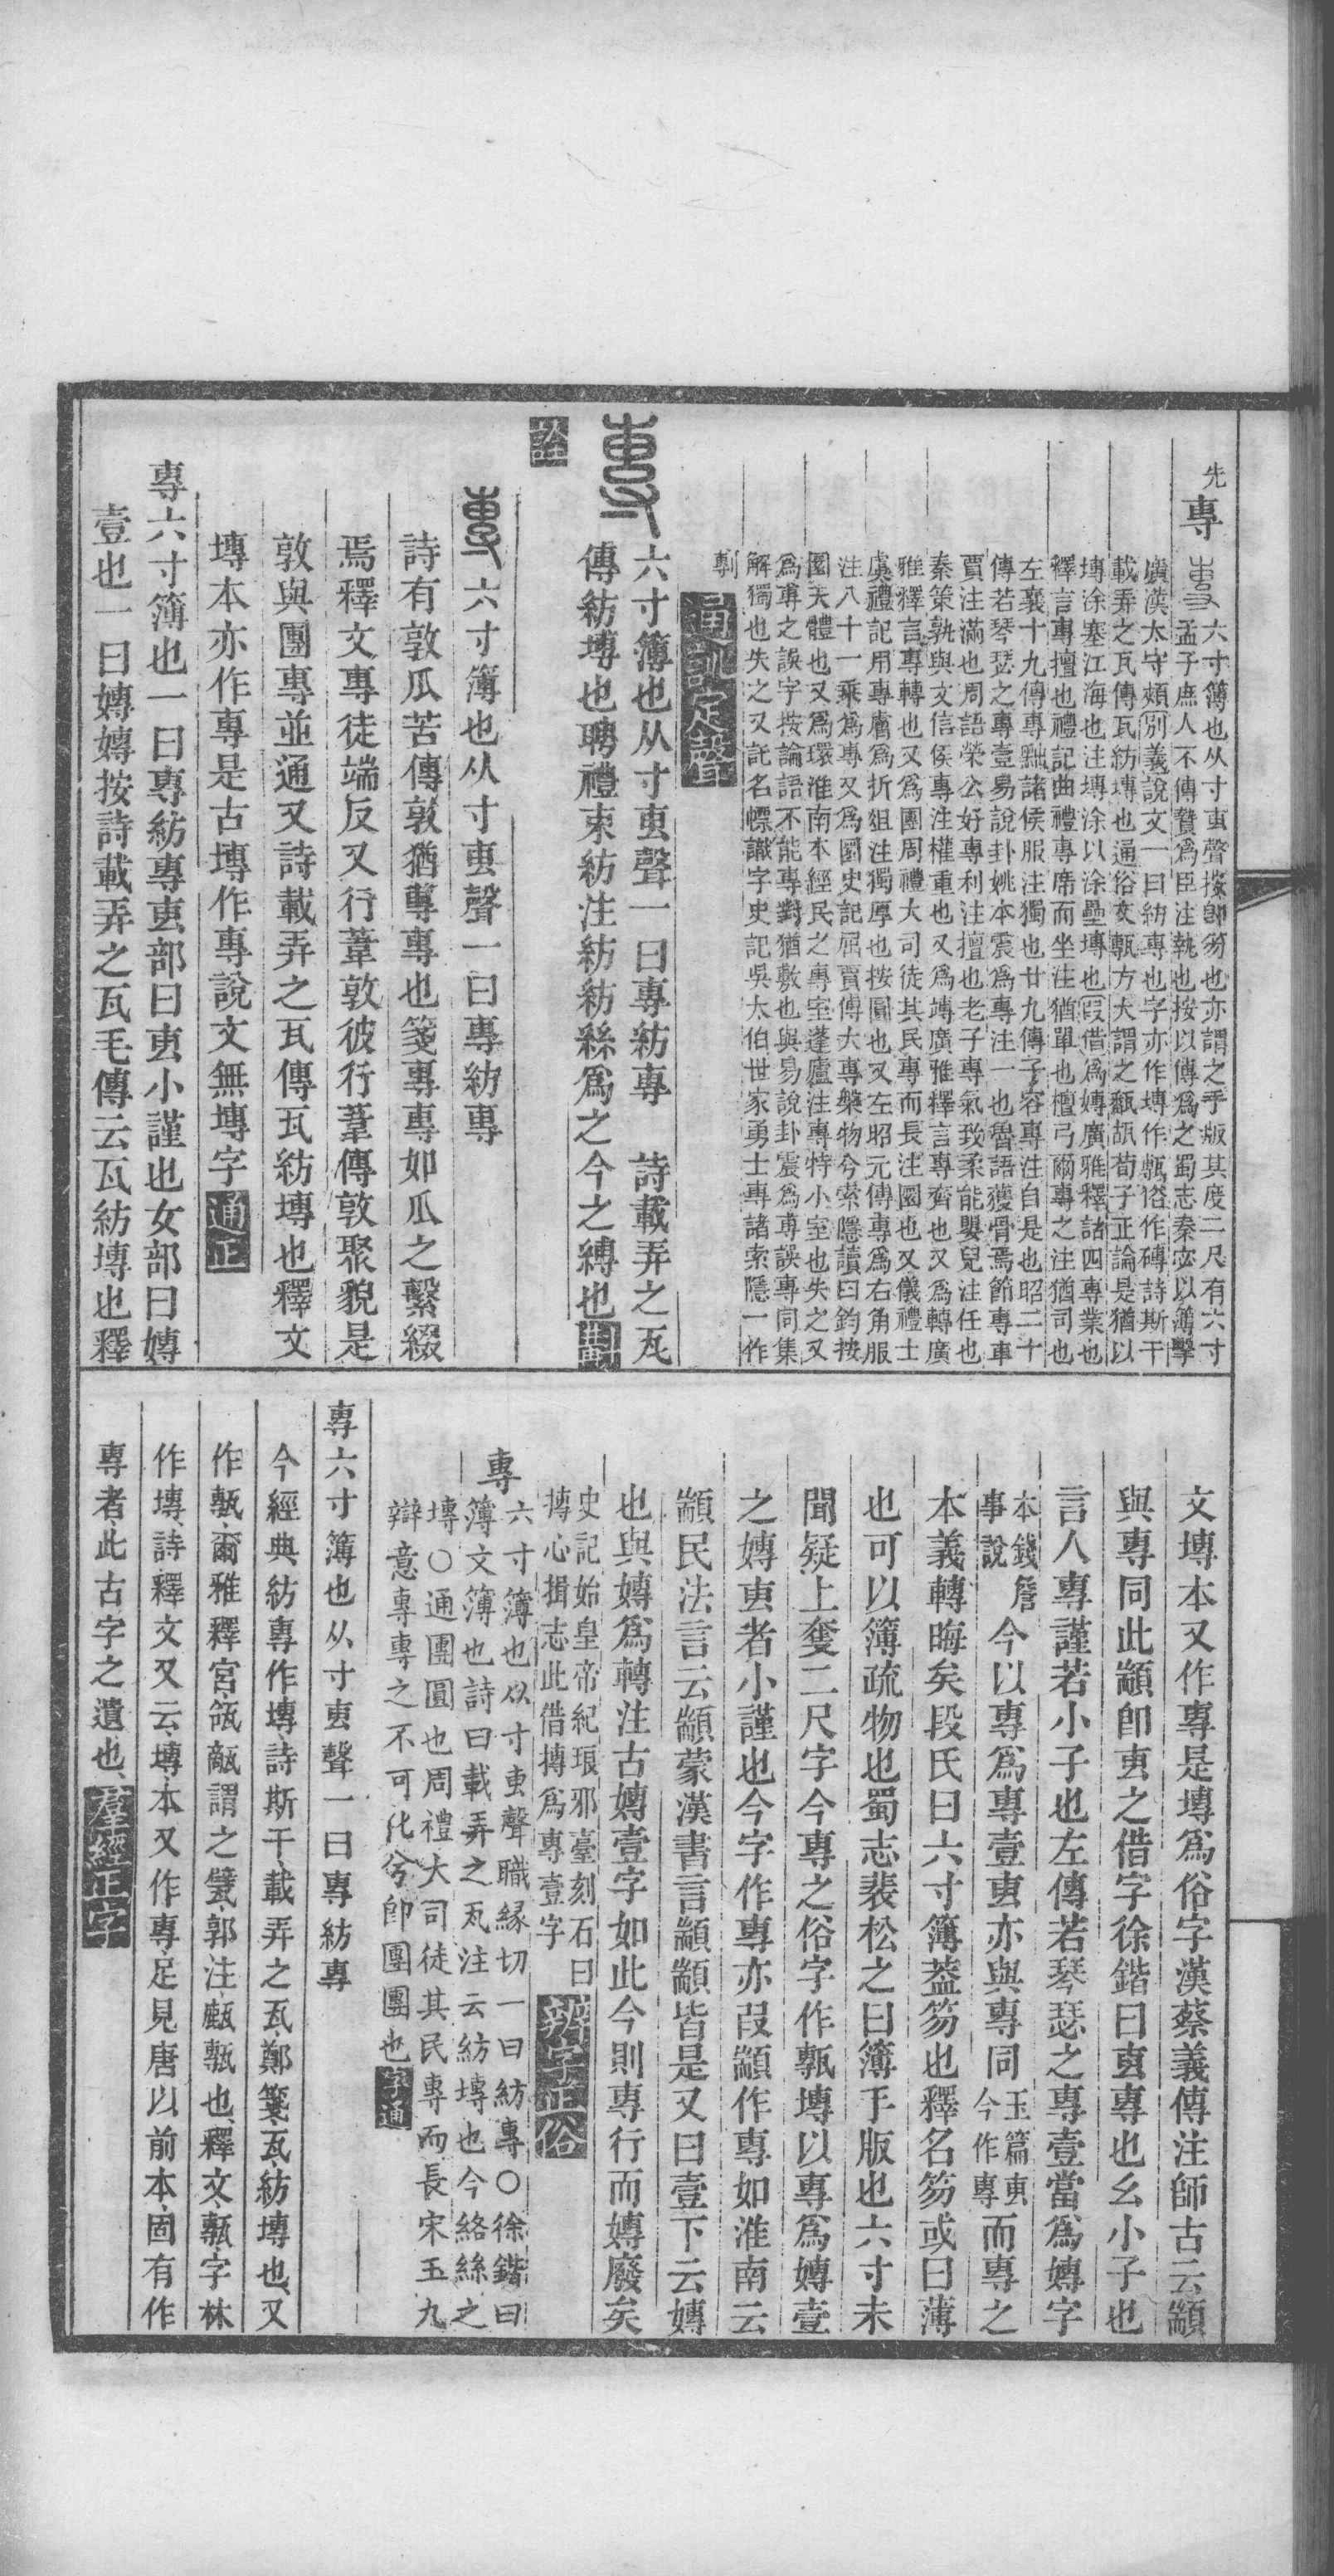 先
專
六寸簿也从寸叀聲按卽笏也亦謂之手版其度二尺有六寸
孟子庶人不傳贄爲臣注執也按以傳爲之蜀志秦宓以簿擊
廣漢太守頰別義說文一曰紡專也字亦作塼作甎俗作磚詩斯干
載弄之瓦傳瓦紡塼也通俗文甎方大謂之㼾瓳荀子正論是猶以
塼涂塞江海也注塼涂以涂壘塼也叚借爲嫥廣雅釋詁四專業也
釋言專擅也禮記曲禮專席而坐注猶單也檀弓爾專之注猶司也
左襄十九傳專黜諸侯服注獨也廿九傳子容專注自是也昭二十
傳若琴瑟之專壹易說卦姚本震爲專注一也魯語獲骨焉節專車
賈注滿也周語榮公好專利注擅也老子專氣致柔能嬰兒注任也
秦策孰與文信侯專注權重也又爲竱廣雅釋言專齊也又爲轉廣
雅釋言專轉也又爲團周禮大司徒其民專而長注圜也又儀禮士
虞禮記用專膚爲折俎注獨厚也按圓也又左昭元傳專爲右角服
注八十一乘爲專又爲圜史記屈賈傳大專槃物兮索隱讀曰鈞按
圜天體也又爲環淮南本經民之專室蓬廬注專特小室也失之又
爲尃之誤字按論語不能專對猶敷也與易說卦震爲尃誤專同集
解獨也失之又託名幖識字史記吳太伯世家勇士專諸索隱一作
剸
通訓定聲
六寸簿也从寸叀聲一曰專紡專 詩載弄之瓦
傳紡塼也聘禮束紡注紡紡絲爲之今之縛也
六寸簿也从寸叀聲一曰專紡專
詩有敦瓜苦傳敦猶專專也箋專專如瓜之繫綴
焉釋文專徒端反又行葦敦彼行葦傳敦聚貌是
敦與團專並通又詩載弄之瓦傳瓦紡塼也釋文
塼本亦作專是古塼作專說文無塼字通正
專六寸簿也一曰專紡專叀部曰叀小謹也女部曰嫥
壹也一曰嫥嫥按詩載弄之瓦毛傳云瓦紡塼也釋
文塼本又作專是塼爲俗字漢蔡義傳注師古云顓
與專同此顓卽叀之借字徐鍇曰叀專也幺小子也
言人專謹若小子也左傳若琴瑟之專壹當爲嫥字
本錢詹
事說
今以專爲專壹叀亦與專同
玉篇叀
今作專
而專之
本義轉晦矣段氏曰六寸簿葢笏也釋名笏或曰薄
也可以簿疏物也蜀志裴松之曰簿手版也六寸未
聞疑上奪二尺字今專之俗字作甎塼以專爲嫥壹
之嫥叀者小謹也今字作專亦叚顓作專如淮南云
顓民法言云顓蒙漢書言顓顓皆是又曰壹下云嫥
也與嫥爲轉注古嫥壹字如此今則專行而嫥廢矣
史記始皇帝紀琅邪臺刻石曰
摶心揖志此借摶爲專壹字
辨字正俗
專
六寸簿也从寸叀聲職緣切一曰紡專○徐鍇曰
簿文簿也詩曰載弄之瓦注云紡塼也今絡絲之
塼○通團圓也周禮大司徒其民專而長宋玉九
辯意專專之不可化兮卽團團也字通
專六寸簿也从寸叀聲一曰專紡專
今經典紡專作塼詩斯干載弄之瓦鄭箋瓦紡塼也又
作甎爾雅釋宮瓴甋謂之甓郭注㼾甎也釋文甎字林
作塼詩釋文又云塼本又作專足見唐以前本固有作
專者此古字之遺也羣經正字